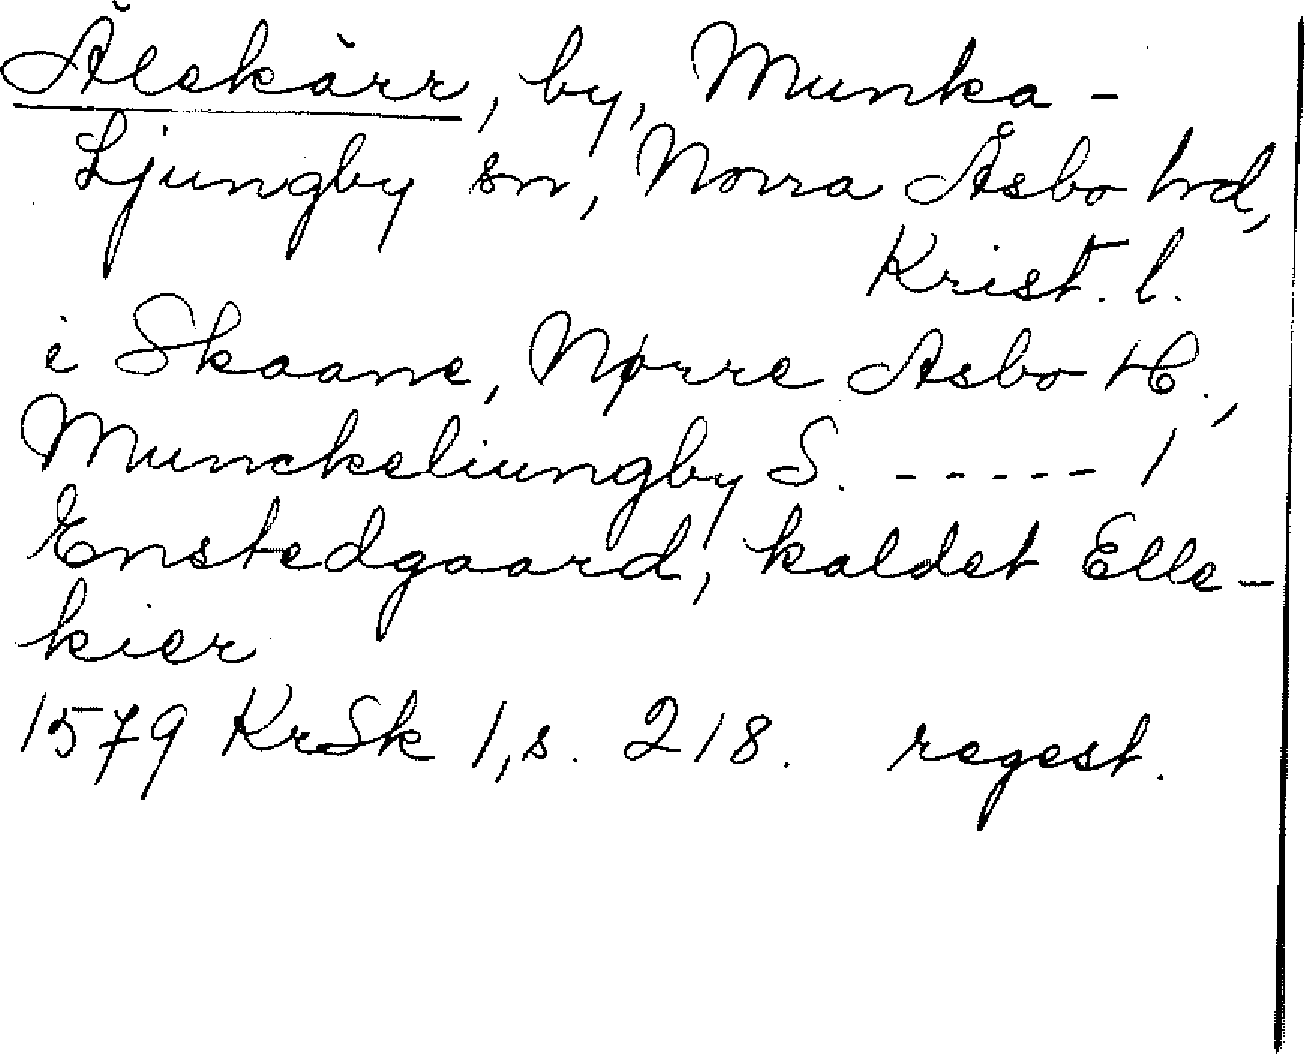 Älskärr, by, Munka-
Ljungby sn, Norra Åsbo hrd,
Krist. l.
i Skaane, Nørre Asbo H.,
Munckeliungby S. ----- 1
Enstedgaard, kaldet Elle-
kier
1579 KrSk 1, s. 218. regest.